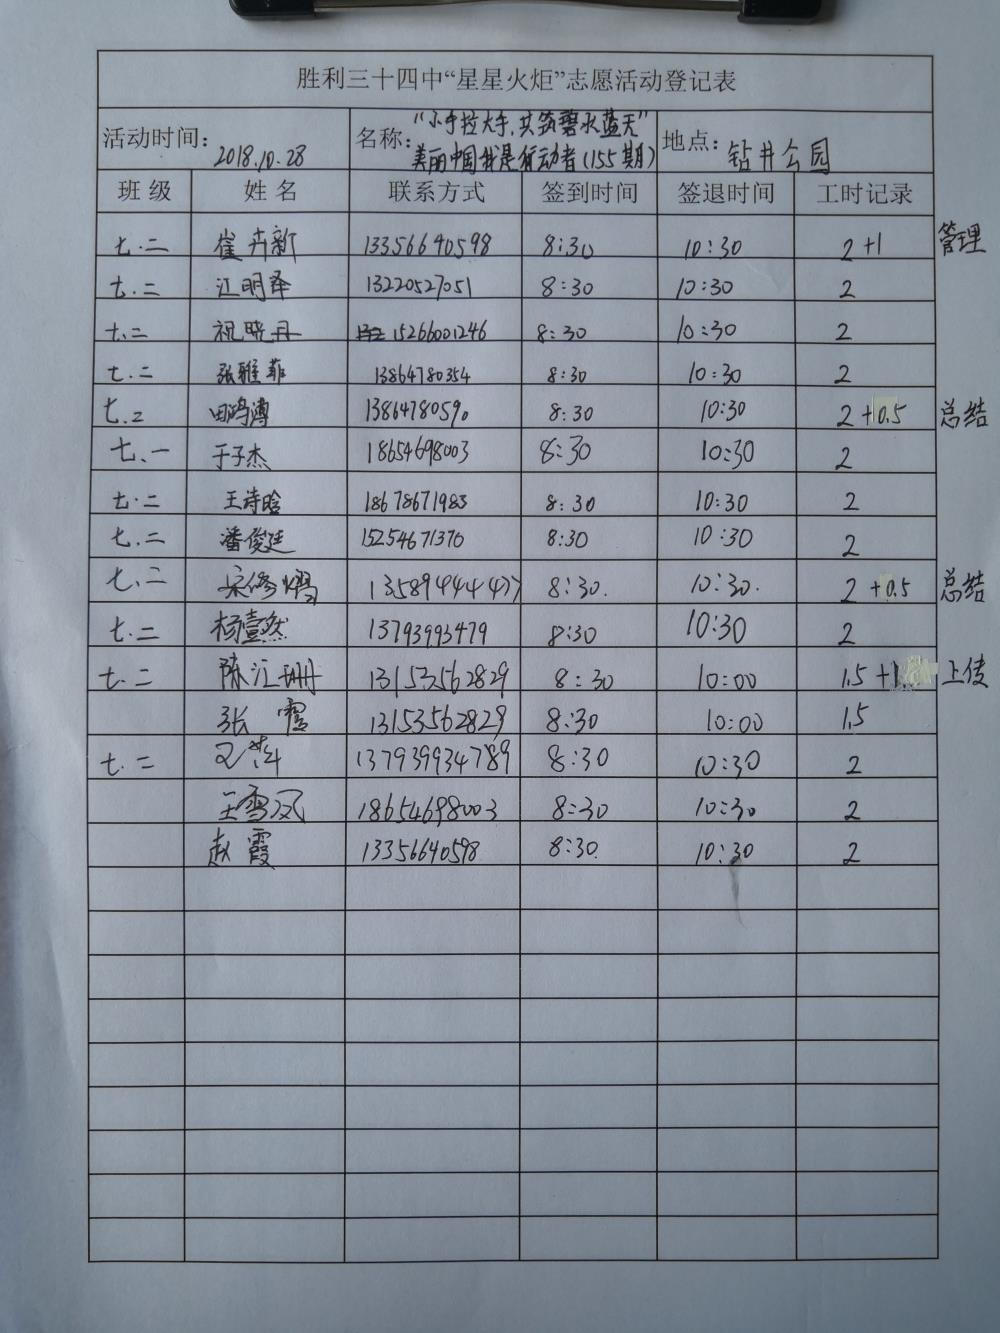 胜利三十四中“星星火炬”志愿活动登记表
活动时间: 2018.10.28 名称: “小手拉大手,共筑碧水蓝天” 美丽中国我是行动者(155期) 地点: 钻井公园
班级 姓名 联系方式 签到时间 签退时间 工时记录
七.二 崔卉新 13356640598 8:30 10:30 2+1 管理
七.二 江明泽 13220527051 8:30 10:30 2
七.二 祝晓丹 15266001246 8:30 10:30 2
七.二 张雅菲 13864780354 8:30 10:30 2
七.二 田鸿溥 13864780590 8:30 10:30 2+0.5 总结
七.一 于子杰 18654698003 8:30 10:30 2
七.二 王诗晗 18678671983 8:30 10:30 2
七.二 潘俊廷 15254671370 8:30 10:30 2
七.二 宋修熠 13589444477 8:30. 10:30. 2+0.5 总结
七.二 杨壹然 13793993479 8:30 10:30 2
七.二 陈江珊 13153562829 8:30 10:00 1.5+1 上传
张霞 13153562829 8:30 10:00 1.5
七.二 137939934789 8:30 10:30 2
王雪凤 18654698003 8:30 10:30 2
赵霞 13356640598 8:30 10:30 2